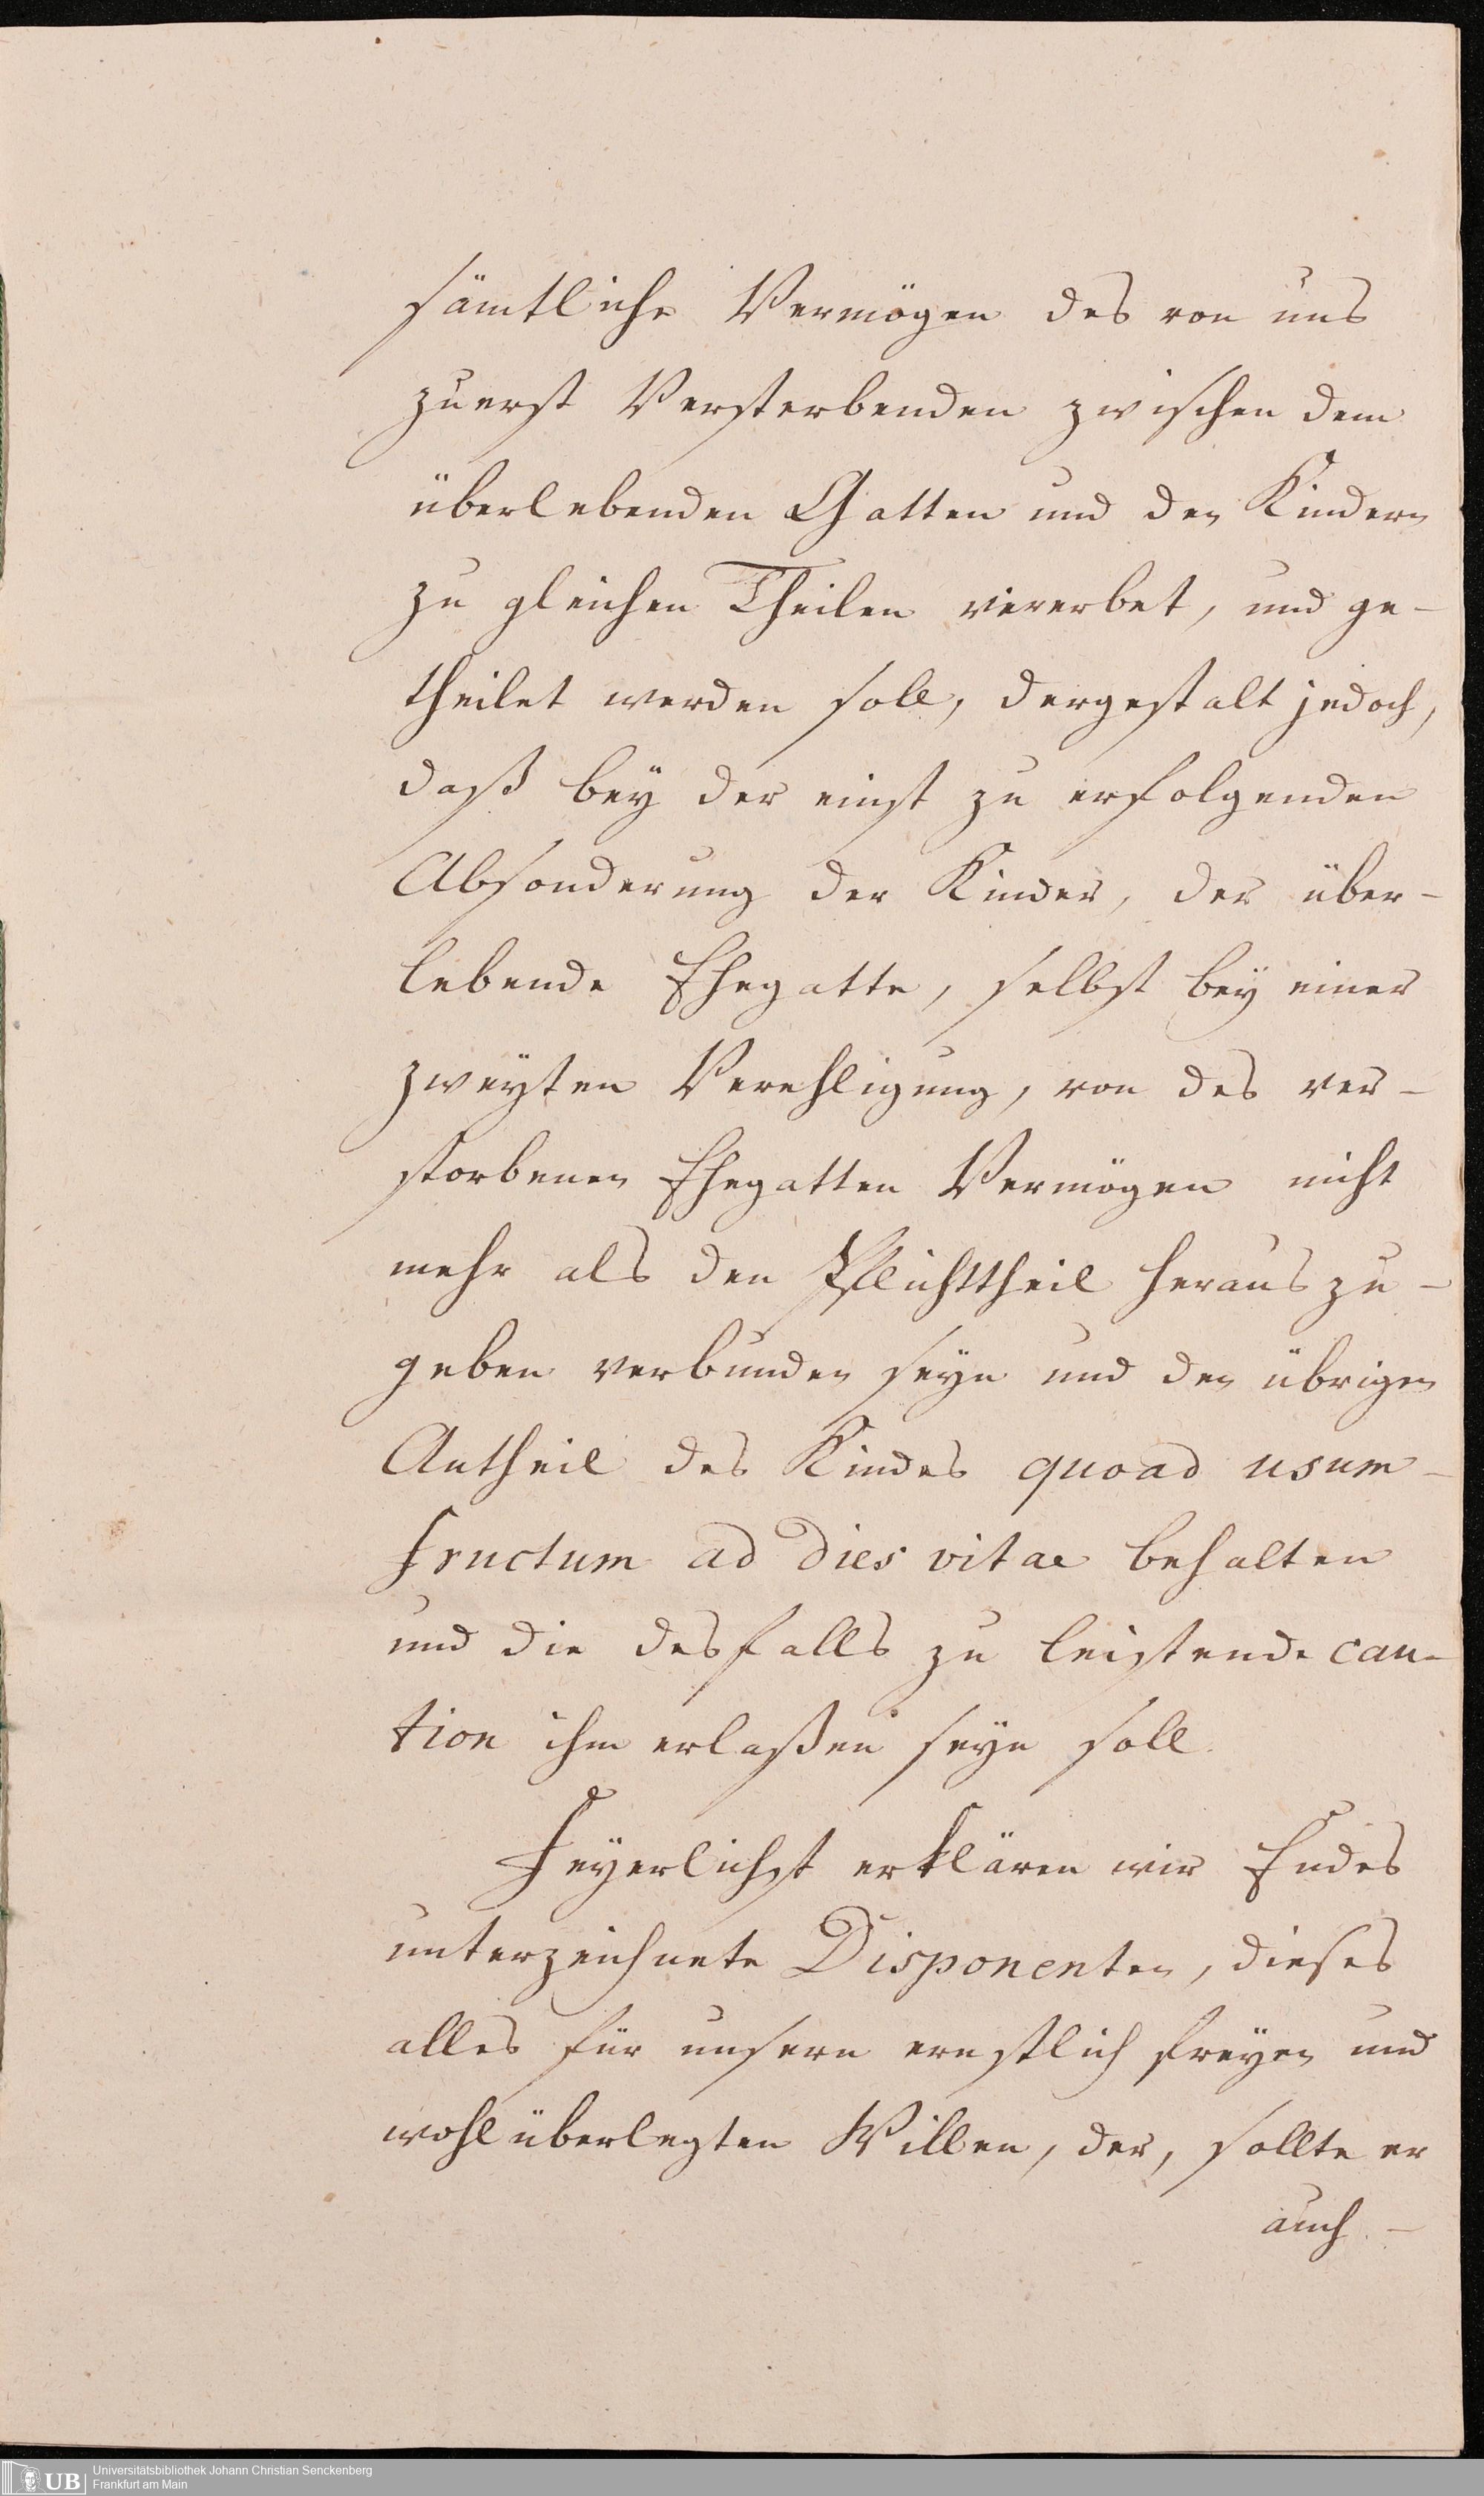 sämtliche Vermögen des von uns
zuerst Versterbenden zwischen dem
überlebenden Gatten und den Kindern
zu gleichen Theilen vererbet, und ge-
theilet werden soll, dergestalt jedoch,
daß bey der einst zu erfolgenden
Absonderung der Kinder, der über-
lebende Ehegatte, selbst bey einer
zweyten Verehligung, von des ver-
storbenen Ehegatten Vermögen nicht
mehr als den Pflichttheil heraus zu-
geben verbunden seyn und den übrigen
Antheil des Kindes quoad usum-
fructum ad dies vitae behalten
und die desfalls zu leistende cau-
tion ihm erlaßen seyn soll.
Feyerlichst erklären wir Endes
unterzeichnete Disponenten, dieses
alles für unsern ernstlich freyen und
wohlüberlegten Willen, der, sollte er
auch. -
UB
Universitätsbibliothek Johann Christian Senckenberg
Frankfurt am Main